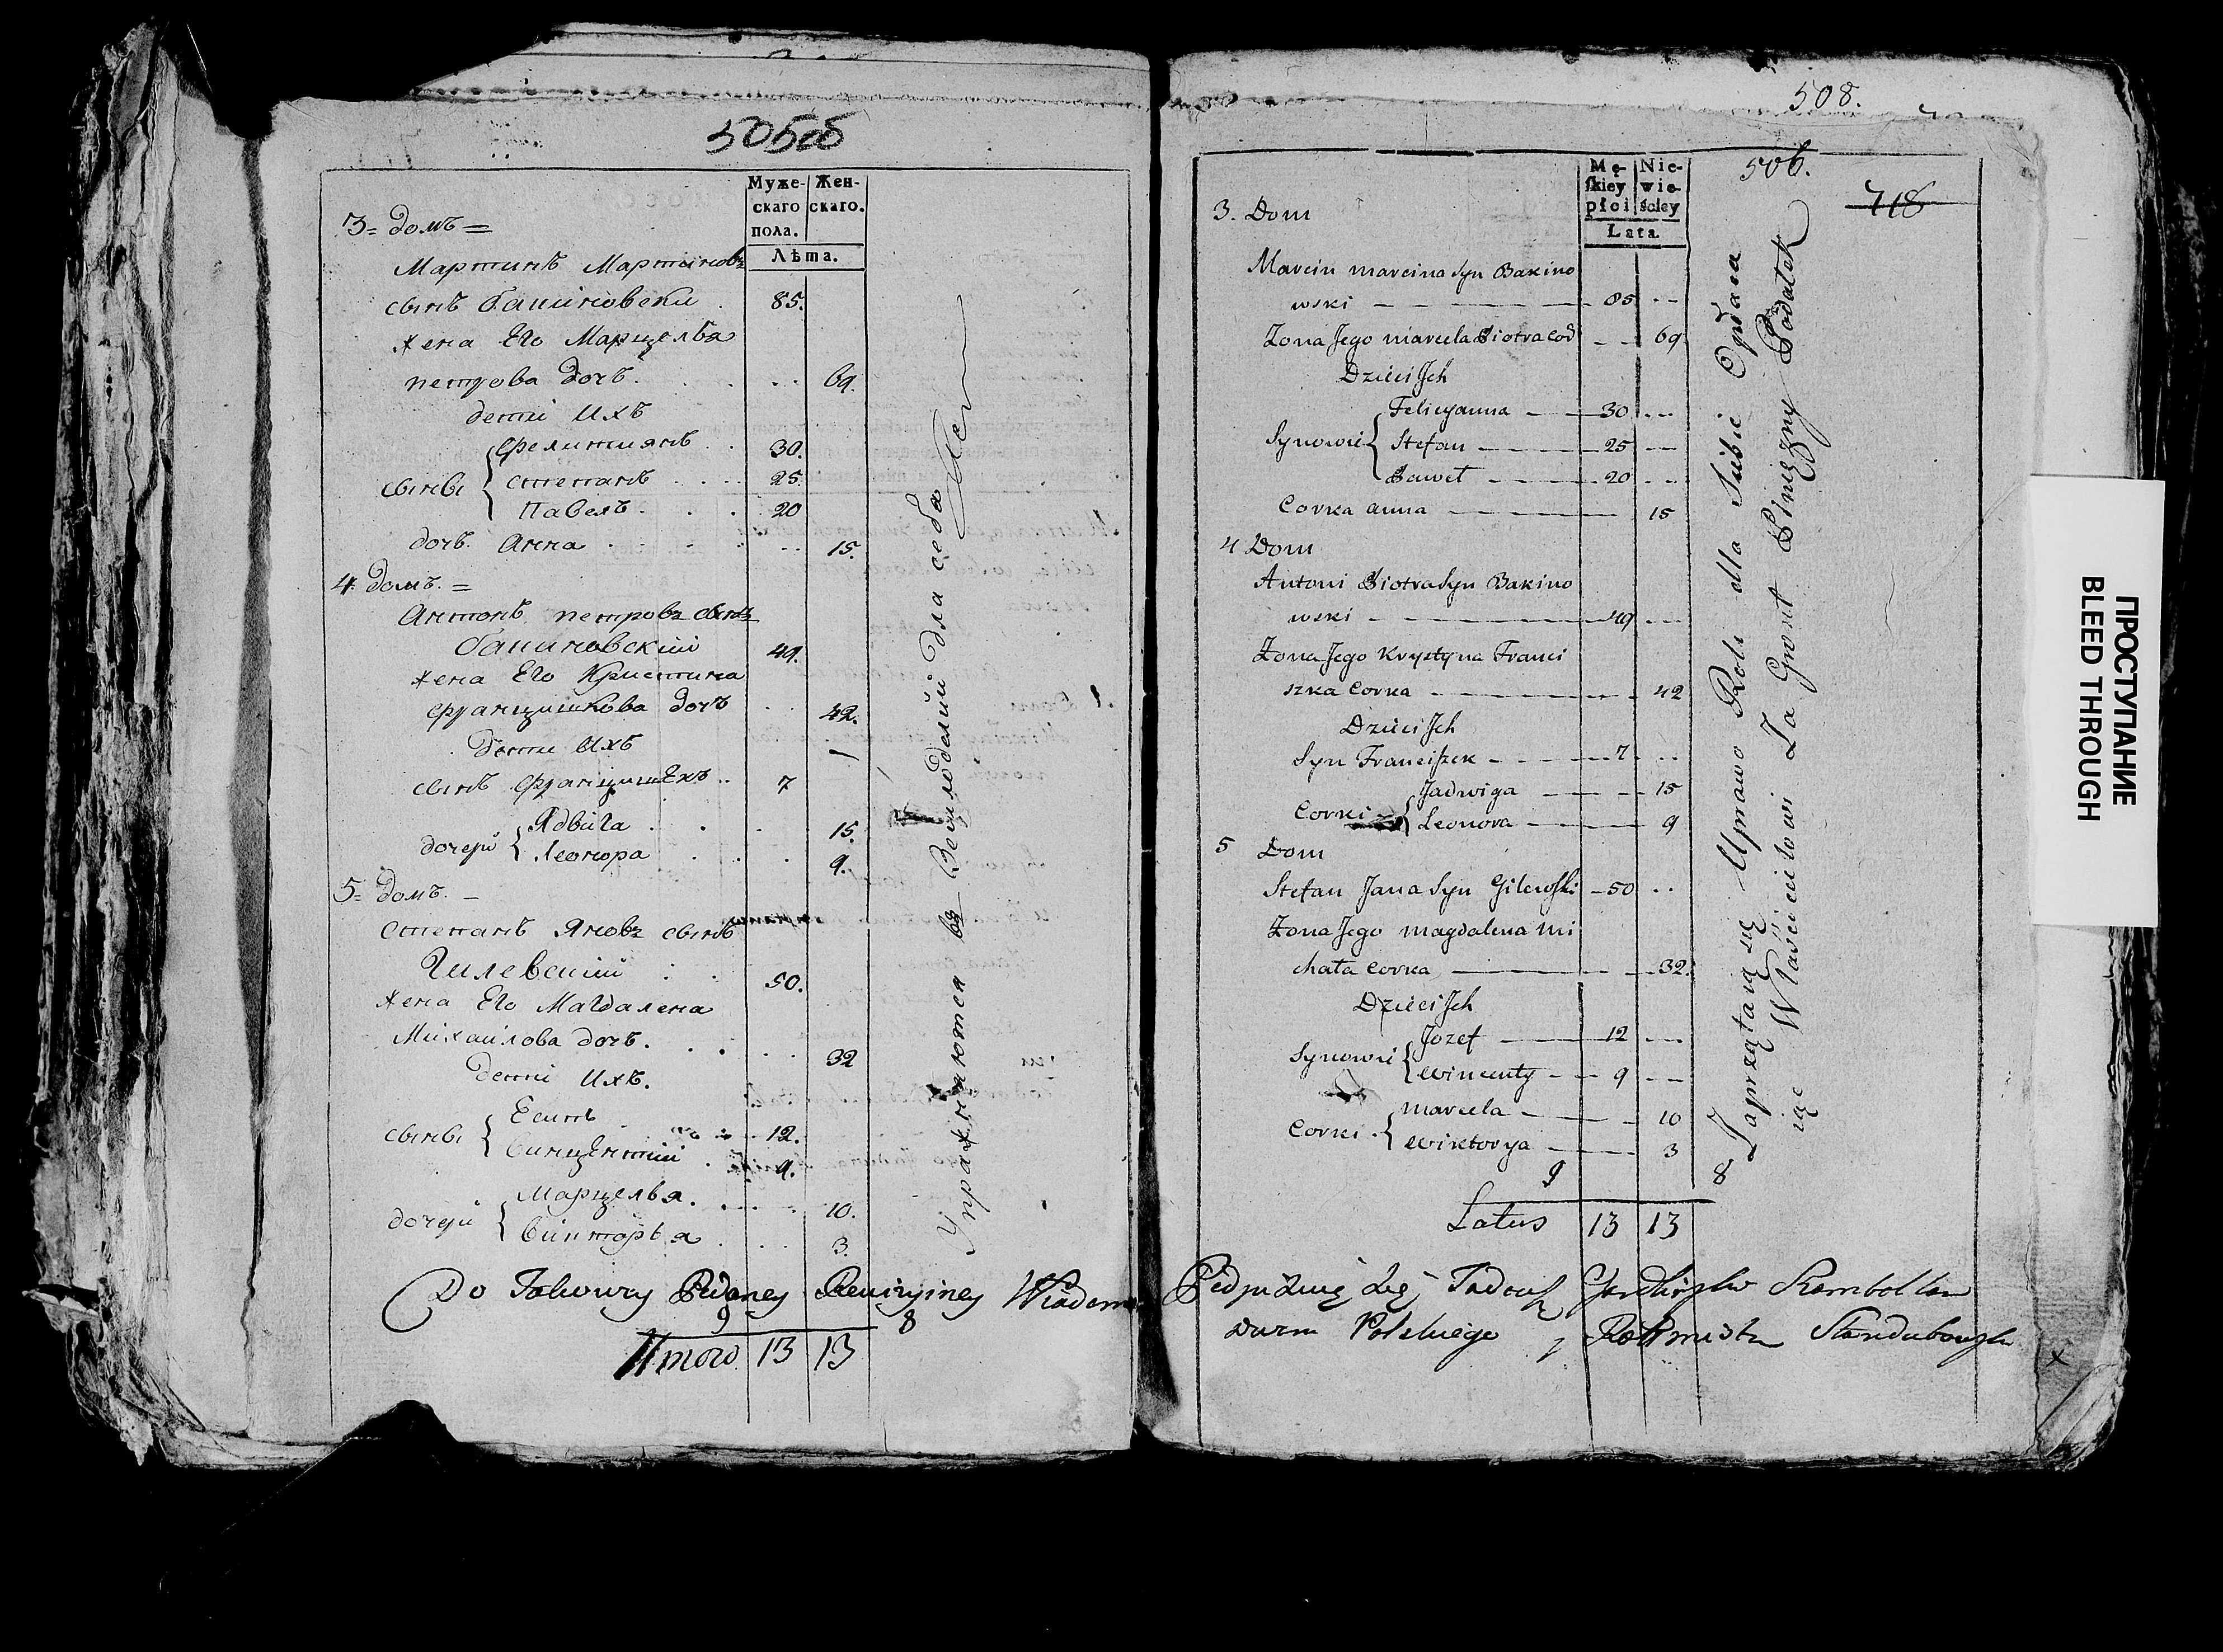 505об
Муже-
скаго
пола.
Жен-
скаго.
Лѣта.
3 = домъ =
Мартинъ Мартиновъ
сынъ бакиновски . 85.
жена Его Марцелья
петрова дочъ. . . . 69.
дети Ихъ
сыны { Фелицианъ . . 30.
Степанъ . . . 25.
Павелъ . . . 20
дочъ. Анна . . . . 15.
4. домъ. =
Антонъ петровъ сынъ
бакиновскии 49.
жена Его Кристина
Францишкова дочъ . . 42.
дети Ихъ
сынъ Францишекъ .. 7
дочери { Ядвига . . . 15.
Леонора . . . 9.
5 = домъ. =
Степанъ Яновъ сынъ
Гилевскии . . 50.
жена Его Магдалена
Михаилова дочъ. . . . 32
дети Ихъ.
сыны { Есипъ . . 12.
Винцентии . 9.
дочери { Марцелья. . . . 10.
Викторья . . . 3.
Упражняются въ Земледелии для себя
Do Takowey Podaney Rewizyiney Wiadom
9 8
Итого 13 13
508.
506.
718
Mę-
skiey
płci
Nie-
wie-
ściey
Lata.
3. Dom
Marcin marcina Syn Bakino
wski — — — 85 --
Zona Jego marcela Piotra Cod — — 69
Dzieci Jch
Synowie { Felicyanna — 30 --
Stefan — 25 --
Pawеł — 20 --
Corka anna — 15
4 Dom
Antoni Piotra Syn Bakino
wski — 49 --
Zona Jego Krystyna Franci
szka Corka — 42
Dzieci Jch
Syn Franciszek — 7 --
Corki { Jadwiga — 15
Leonora — 9
5 Dom
Stefan Jana Syn Gilewski — 50 --
Zona Jego magdalena mi
chała Corka — 32.
Dzieci Jch
Synowie { Jozef — 12 --
Wincenty — 9 --
Corki { marcela — 10
Wiktorya — 3
9 8
Latus 13 13
Zaprzątaią się Uprawo Roli dla Siebie Opłaca
iąc Właścicielowi Za Gront Pinięzny Podatek
Podpisuię Się Tadeusz
Dworu Polskiego
ПРОСТУПАНИЕ
BLEED THROUGH